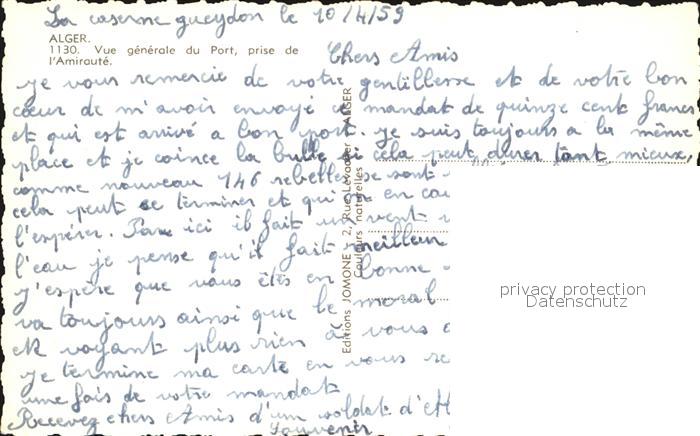 La caserne gueydon le 10/4/59
ALGER.
1130. Vue générale du Port, prise de
l'Amirauté.
Chers Amis
je vous remercie de votre gentillesse et de votre bon
cœur de m'avoir envoyé ce mandat de quinze cent francs
et qui est arrivé a bon port. je suis toujours a la même
place et je coince la bulle si cela peut durer tant mieux,
comme nouveau 146 rebelles se sont
cela peut se terminer et qui en cou
l'espérer. Par ici il fait un vent
l'eau je pense qu'il fait meilleur
j'espère que vous êtes en bonne
va toujours ainsi que le moral
ne voyant plus rien à vous
je termine ma carte en vous re
une fois de votre mandat
Recevez chers Amis d'un soldat d'
Souvenir
Editions JOMONE - 2, Rue Livingstone - ALGER
Couleurs naturelles
privacy protection
Datenschutz